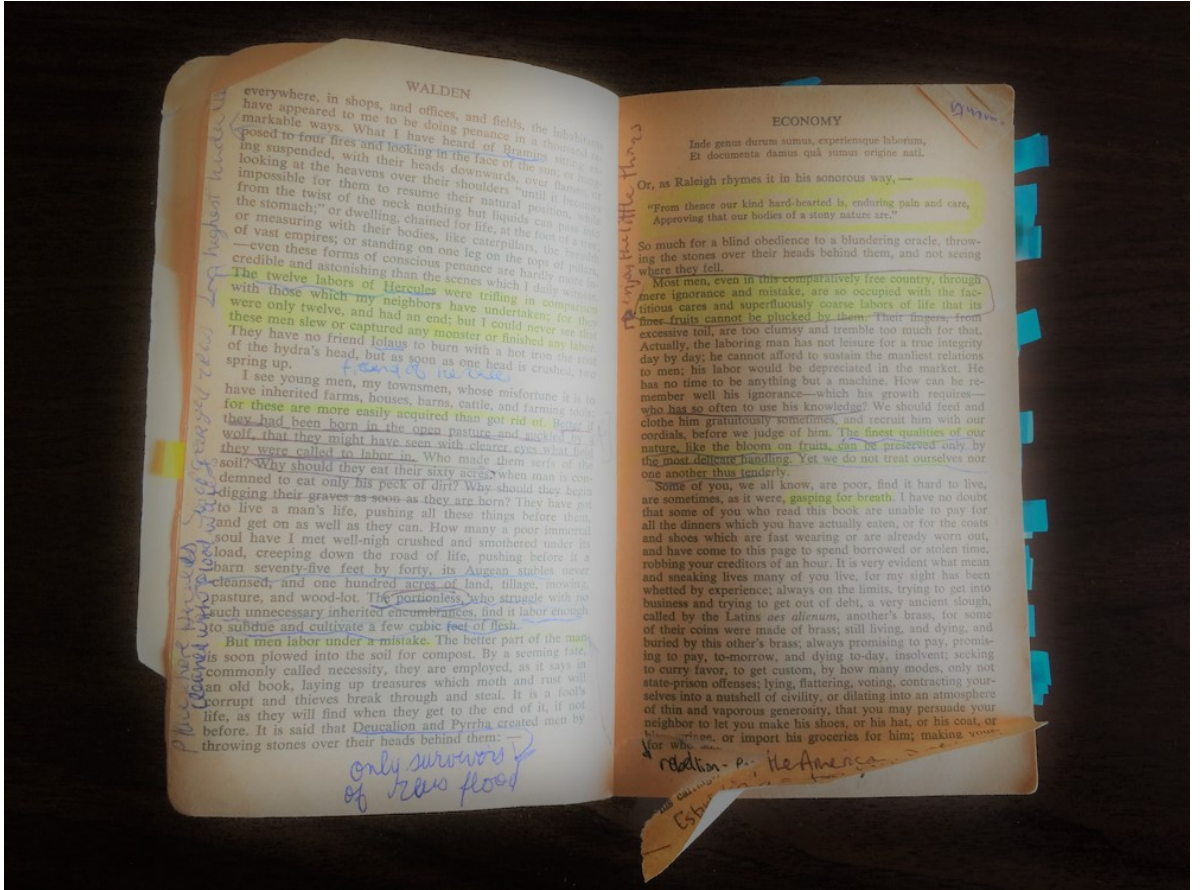 WALDEN
everywhere, in shops, and offices, and fields, the inhabitants
have appeared to me to be doing penance in a thousand re-
markable ways. What I have heard of Bramins sitting ex-
posed to four fires and looking in the face of the sun; or hang-
ing suspended, with their heads downwards, over flames; or
looking at the heavens over their shoulders "until it becomes
impossible for them to resume their natural position, while
from the twist of the neck nothing but liquids can pass into
the stomach;" or dwelling, chained for life, at the foot of a tree;
or measuring with their bodies, like caterpillars, the breadth
of vast empires; or standing on one leg on the tops of pillars,
—even these forms of conscious penance are hardly more in-
credible and astonishing than the scenes which I daily witness.
The twelve labors of Hercules were trifling in comparison
with those which my neighbors have undertaken; for they
were only twelve, and had an end; but I could never see that
these men slew or captured any monster or finished any labor.
They have no friend Iolaus to burn with a hot iron the root
of the hydra's head, but as soon as one head is crushed, two
spring up.
friend of
I see young men, my townsmen, whose misfortune it is to
have inherited farms, houses, barns, cattle, and farming tools;
for these are more easily acquired than got rid of. Better if
they had been born in the open pasture and suckled by a
wolf, that they might have seen with clearer eyes what field
they were called to labor in. Who made them serfs of the
soil? Why should they eat their sixty acres, when man is con-
demned to eat only his peck of dirt? Why should they begin
digging their graves as soon as they are born? They have got
to live a man's life, pushing all these things before them,
and get on as well as they can. How many a poor immortal
soul have I met well-nigh crushed and smothered under its
load, creeping down the road of life, pushing before it a
barn seventy-five feet by forty, its Augean stables never
cleansed, and one hundred acres of land, tillage, mowing,
pasture, and wood-lot. The portionless, who struggle with no
such unnecessary inherited encumbrances, find it labor enough
to subdue and cultivate a few cubic feet of flesh.
But men labor under a mistake. The better part of the man
is soon plowed into the soil for compost. By a seeming fate,
commonly called necessity, they are employed, as it says in
an old book, laying up treasures which moth and rust will
corrupt and thieves break through and steal. It is a fool's
life, as they will find when they get to the end of it, if not
before. It is said that Deucalion and Pyrrha created men by
throwing stones over their heads behind them: —
only survivors
of Zeus flood
place where Hercules
cleaned with
highest
ECONOMY
Inde genus durum sumus, experiensque laborum,
Et documenta damus quâ simus origine nati.
Or, as Raleigh rhymes it in his sonorous way, —
"From thence our kind hard-hearted is, enduring pain and care,
Approving that our bodies of a stony nature are."
So much for a blind obedience to a blundering oracle, throw-
ing the stones over their heads behind them, and not seeing
where they fell.
Most men, even in this comparatively free country, through
mere ignorance and mistake, are so occupied with the fac-
titious cares and superfluously coarse labors of life that its
finer fruits cannot be plucked by them. Their fingers, from
excessive toil, are too clumsy and tremble too much for that.
Actually, the laboring man has not leisure for a true integrity
day by day; he cannot afford to sustain the manliest relations
to men; his labor would be depreciated in the market. He
has no time to be anything but a machine. How can he re-
member well his ignorance—which his growth requires—
who has so often to use his knowledge? We should feed and
clothe him gratuitously sometimes, and recruit him with our
cordials, before we judge of him. The finest qualities of our
nature, like the bloom on fruits, can be preserved only by
the most delicate handling. Yet we do not treat ourselves nor
one another thus tenderly.
Some of you, we all know, are poor, find it hard to live,
are sometimes, as it were, gasping for breath. I have no doubt
that some of you who read this book are unable to pay for
all the dinners which you have actually eaten, or for the coats
and shoes which are fast wearing or are already worn out,
and have come to this page to spend borrowed or stolen time,
robbing your creditors of an hour. It is very evident what mean
and sneaking lives many of you live, for my sight has been
whetted by experience; always on the limits, trying to get into
business and trying to get out of debt, a very ancient slough,
called by the Latins aes alienum, another's brass, for some
of their coins were made of brass; still living, and dying, and
buried by this other's brass; always promising to pay, promis-
ing to pay, to-morrow, and dying to-day, insolvent; seeking
to curry favor, to get custom, by how many modes, only not
state-prison offenses; lying, flattering, voting, contracting your-
selves into a nutshell of civility, or dilating into an atmosphere
of thin and vaporous generosity, that you may persuade your
neighbor to let you make his shoes, or his hat, or his coat, or
or import his groceries for him; making your-
for
rebellion - America
enjoy the little things